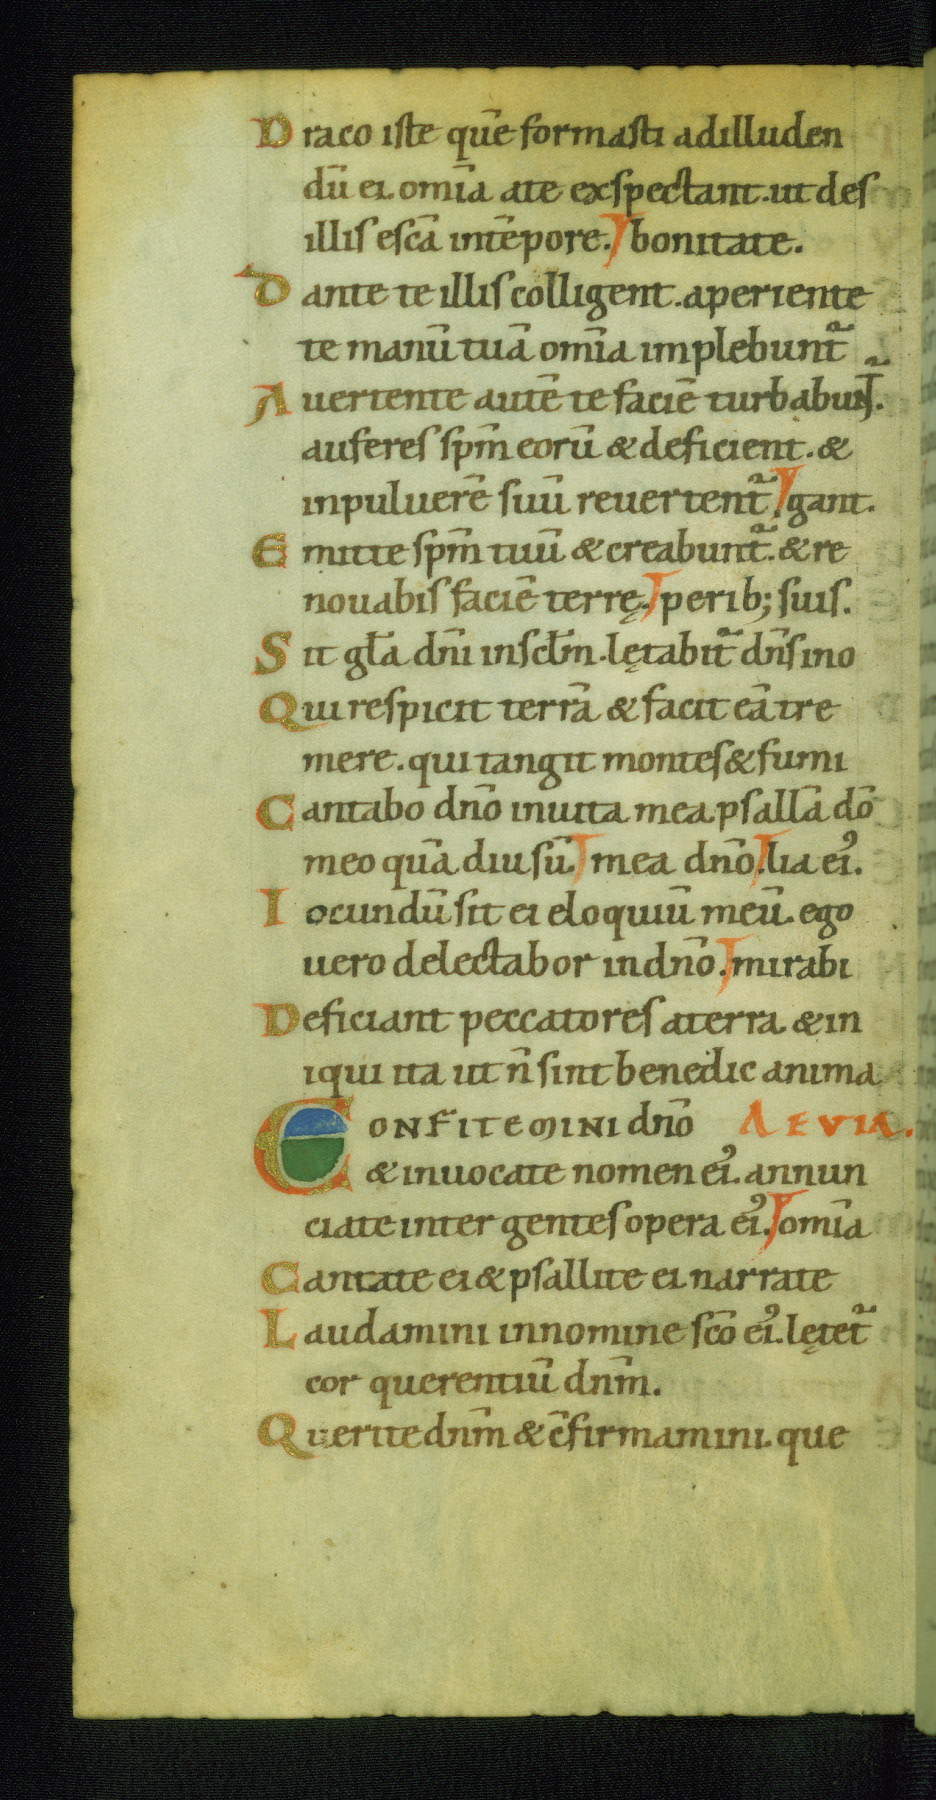 Draco iste quē formasti adilluden
dū ei. omīa ate exspectant. ut des
illis escā intēpore. bonitate.
Dante te illis colligent. aperiente
te manū tuā omīa implebunt᷑
Auertente autē te faciē turbabunt᷑.
auferes sp̄m eorū & deficient. &
inpuluerē suū reuertent᷑ gant.
Emitte sp̄m tuū & creabunt᷑. & re
nouabis faciē terrę. perib; suis.
Sit gl̄a dn̄i insc̄lm. lętabit᷑ dn̄s ino
Qui respicit terrā & facit eā tre
mere. qui tangit montes & fumi
Cantabo dn̄o inuita mea. psallā dō
meo quādiu sū mea dn̄o. lia eiꝰ.
Iocundū sit ei eloquiū meū. ego
uero delectabor indn̄o. mirabi
Deficiant peccatores aterra. & in
iqui ita ut n̄ sint benedic anima
CONFITEMINI dn̄o AEVIA.
& inuocate nomen eiꝰ. annun
ciate inter gentes opera eiꝰ. omīa
Cantate ei & psallite ei narrate
Laudamini innomine sc̄o eiꝰ. lętet᷑
cor querentiū dn̄m.
Querite dn̄m & c̄firmamini. que